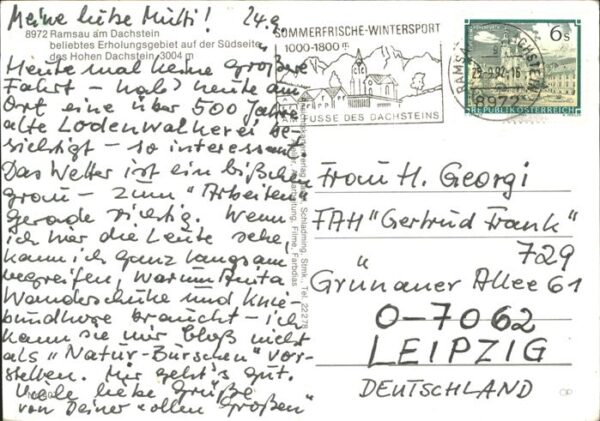 Meine liebe Mutti! 24.9.
8972 Ramsau am Dachstein
beliebtes Erholungsgebiet auf der Südseite
des Hohen Dachstein, 3004 m
Heute mal keine größere
Fahrt – hab' heute am
Ort eine über 500 Jahre
alte Lodenwalkerei be-
sichtigt – so interessant
Das Wetter ist ein bißchen
grau – zum "Arbeiten"
gerade richtig. Wenn
ich hier die Leute sehe,
kann ich ganz langsam
begreifen, warum Anita
Wanderschuhe und Knie-
bundhose braucht – ich
kann sie mir bloß nicht
als „Natur-Burschen" vor-
stellen. Mir geht's gut.
Viele liebe Grüße
von Deiner "ollen Großen"
SOMMERFRISCHE-WINTERSPORT
1000-1800 m
AM FUSSE DES DACHSTEINS
RAMSAU DACHSTEIN
8972
6 S
REPUBLIK ÖSTERREICH
Schladming, Stmk., Tel. 22278
Filme, Farbdias
Frau H. Georgi
FAH "Gertrud Frank"
729
Grünauer Allee 61
O-7062
LEIPZIG
DEUTSCHLAND